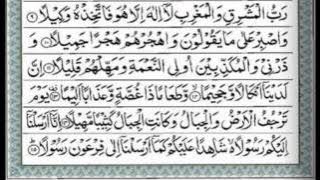 رَبُّ الْمَشْرِقِ وَالْمَغْرِبِ لَا إِلَهَ إِلَّا هُوَ فَاتَّخِذْهُ وَكِيلًا ٩
وَاصْبِرْ عَلَىٰ مَا يَقُولُونَ وَاهْجُرْهُمْ هَجْرًا جَمِيلًا ١٠
وَذَرْنِي وَالْمُكَذِّبِينَ أُولِي النَّعْمَةِ وَمَهِّلْهُمْ قَلِيلًا ١١ إِنَّ
لَدَيْنَا أَنْكَالًا وَجَحِيمًا ١٢ وَطَعَامًا ذَا غُصَّةٍ وَعَذَابًا أَلِيمًا ١٣ يَوْمَ
تَرْجُفُ الْأَرْضُ وَالْجِبَالُ وَكَانَتِ الْجِبَالُ كَثِيبًا مَهِيلًا ١٤ إِنَّا أَرْسَلْنَا
إِلَيْكُمْ رَسُولًا شَاهِدًا عَلَيْكُمْ كَمَا أَرْسَلْنَا إِلَىٰ فِرْعَوْنَ رَسُولًا ١٥